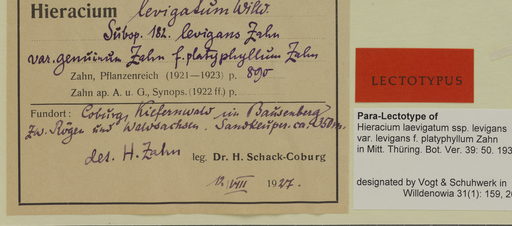 Hieracium levigatum Willd
Subsp. 182. levigans Zahn
var. genuinum Zahn f. platyphyllum Zahn
Zahn, Pflanzenreich (1921—1923) p. 890
Zahn ap. A. u. G., Synops. (1922 ff.) p.
Fundort: Coburg, Kiefernwald im Bausenberg
zw. Rögen und Waldsachsen. Sandkeuper. ca. 350 m.
det. H. Zahn leg. Dr. H. Schack-Coburg
12. VIII 1927.
LECTOTYPUS
Para-Lectotype of
Hieracium laevigatum ssp. levigans
var. levigans f. platyphyllum Zahn
in Mitt. Thüring. Bot. Ver. 39: 50. 193
designated by Vogt & Schuhwerk in
Willdenowia 31(1): 159, 20